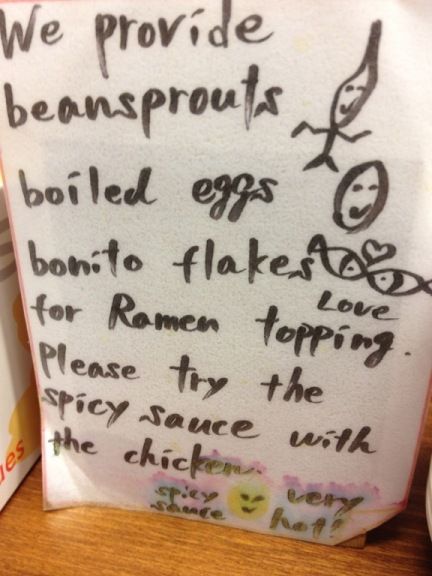 We provide
beansprouts
boiled eggs
bonito flakes
Love
for Ramen topping.
Please try the
spicy sauce with
the chicken.
spicy sauce
very hot!